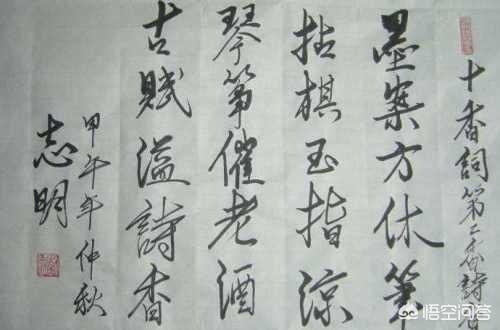 十香詞第二
墨案方休筆
拈棋玉指涼
琴箏催老酒
古賦溢詩香
甲午年仲秋
志明
悟空问答